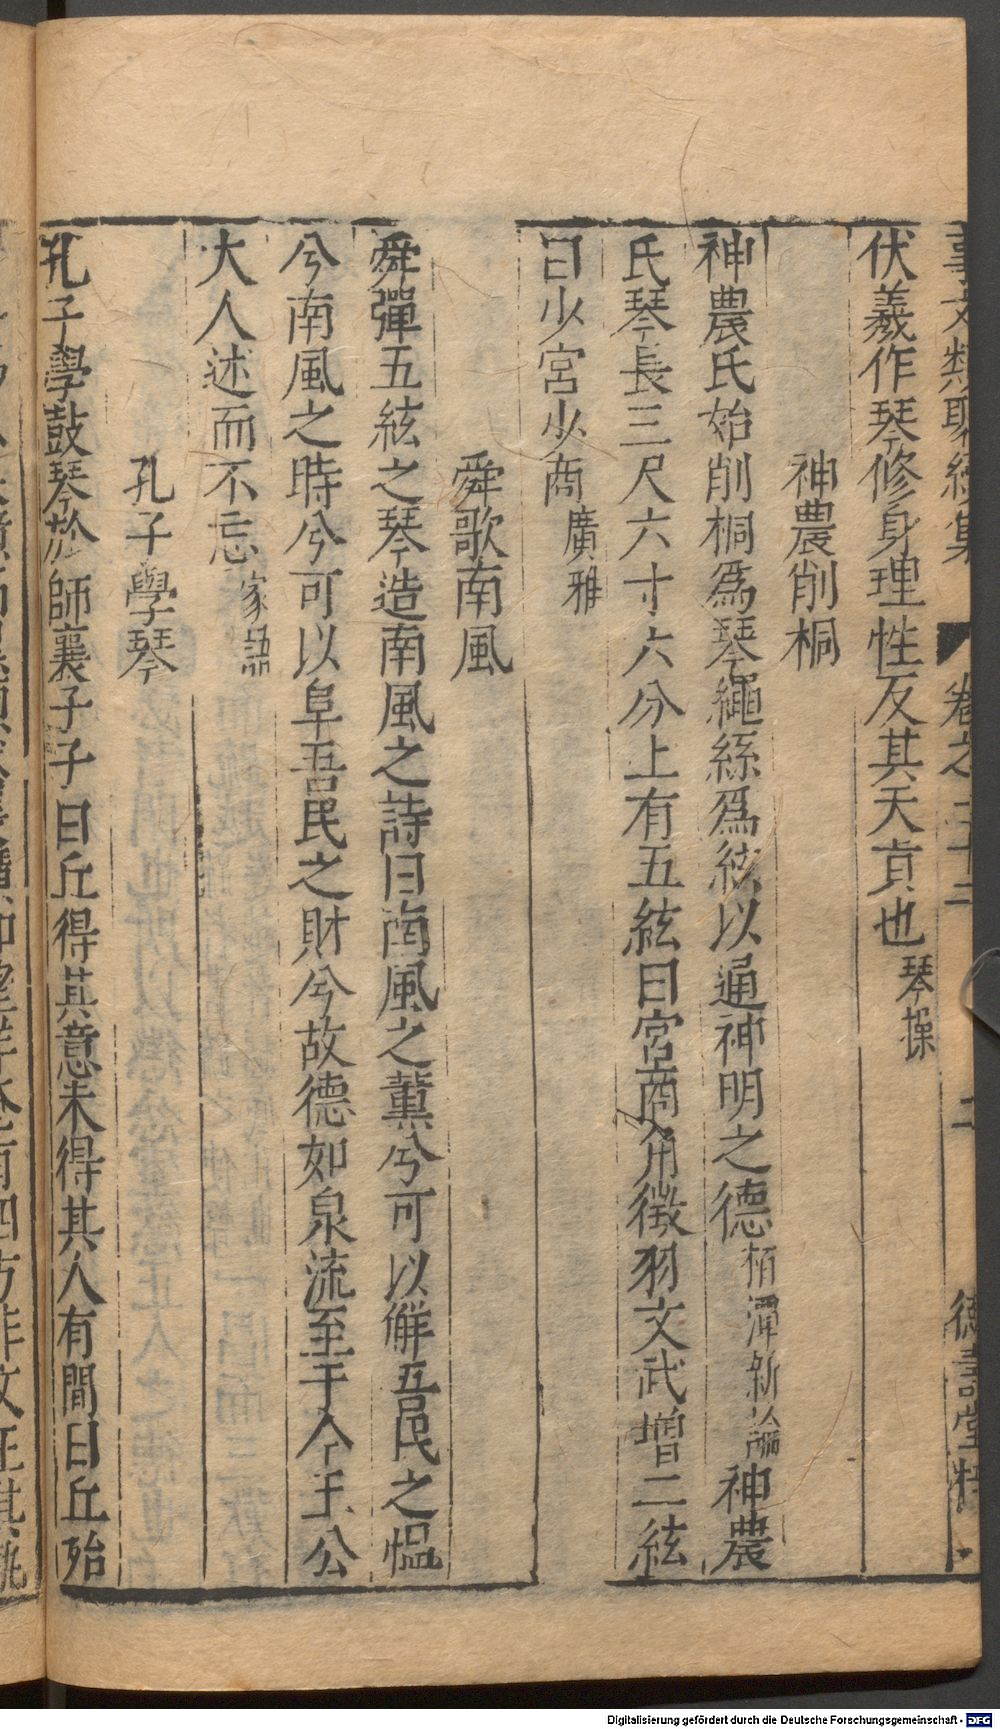 事文類聚續集 卷之二十二 二 德壽堂梓
伏羲作琴修身理性反其天真也琴操
神農削桐
神農氏始削桐爲琴繩絲爲絃以通神明之德桓潭新論神農
氏琴長三尺六寸六分上有五絃曰宮商角徵羽文武增二絃
曰少宮少商廣雅
舜歌南風
舜彈五絃之琴造南風之詩曰南風之薰兮可以解吾民之慍
兮南風之時兮可以阜吾民之財兮故德如泉流至于今王公
大人述而不忘家語
孔子學琴
孔子學鼓琴於師襄子子曰丘得其意未得其人有間曰丘殆
Digitalisierung gefördert durch die Deutsche Forschungsgemeinschaft - DFG